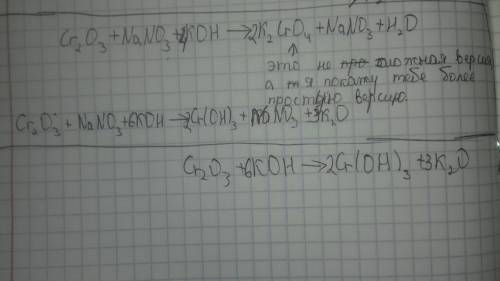 Cr₂O₃ + NaNO₃ + 4KOH → 2K₂CrO₄ + NaNO₃ + H₂O
это не про сложная версия
а я покажу тебе более
простую версию.
Cr₂O₃ + NaNO₃ + 6KOH → 2Cr(OH)₃ + NaNO₃ + 3K₂O
Cr₂O₃ + 6KOH → 2Cr(OH)₃ + 3K₂O